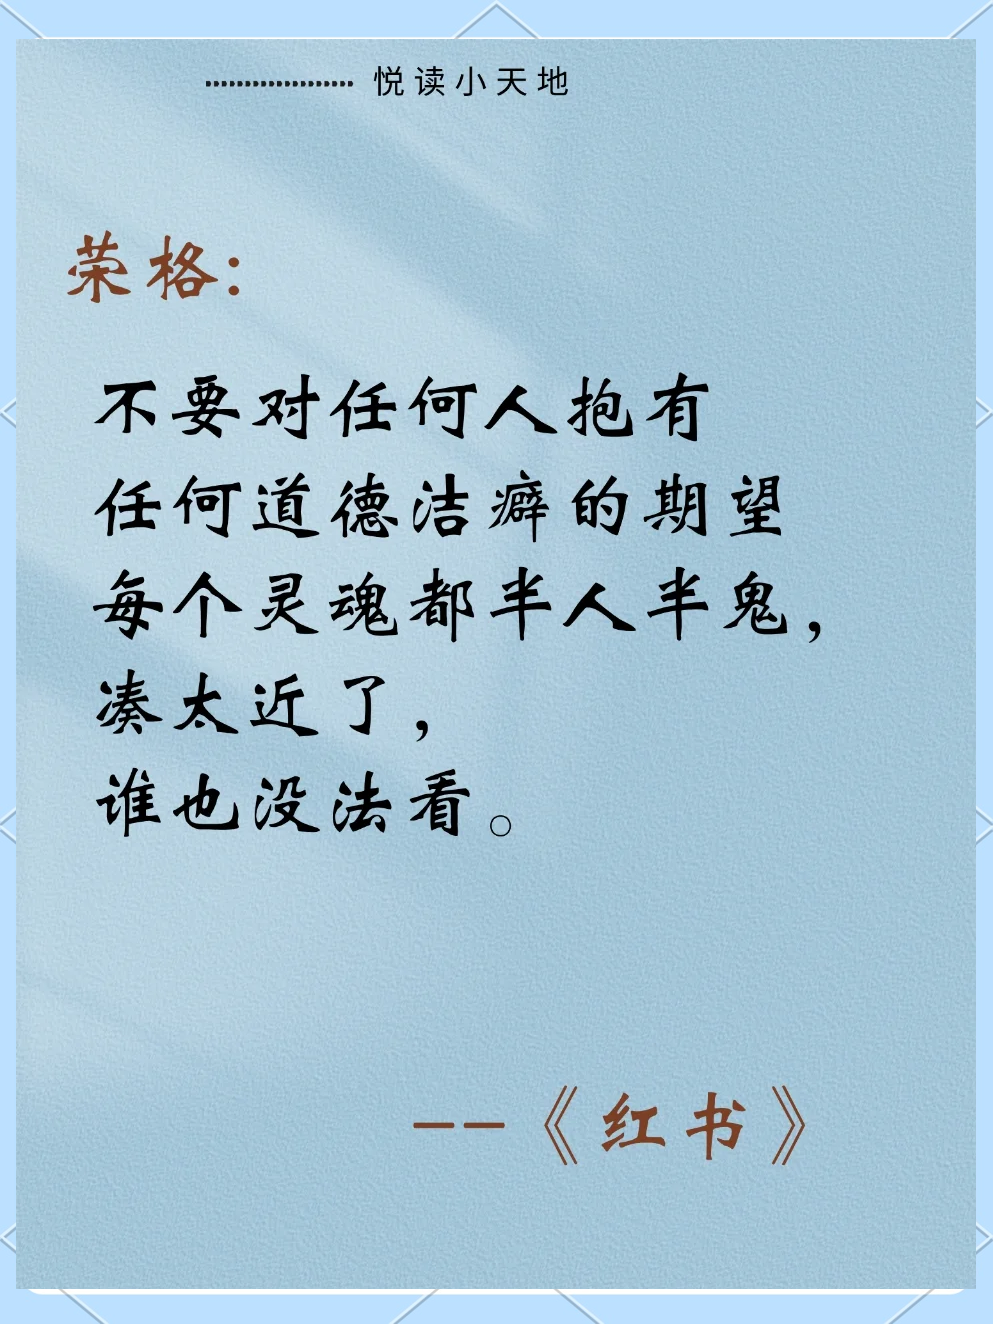 悦读小天地
荣格:
不要对任何人抱有
任何道德洁癖的期望
每个灵魂都半人半鬼,
凑太近了,
谁也没法看。
--《红书》